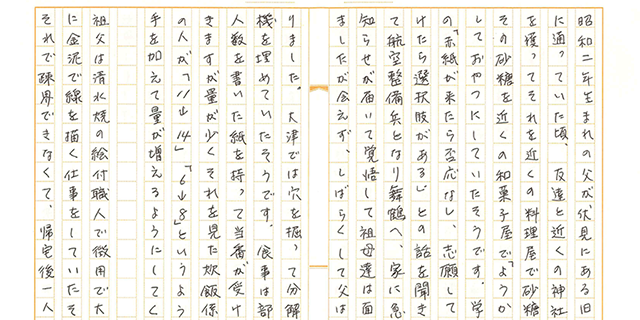 昭和二年生まれの父が、伏見にある旧
に通っていた頃、友達と近くの神社
を獲ってそれを近くの料理屋で砂糖
その砂糖を近くの和菓子屋で「ようか
しておやつにしていたそうです。学
の「赤紙が来たら否応なし、志願して
けたら選択肢がある」との話を聞き
て航空整備兵となり舞鶴へ、家に急
知らせが届いて覚悟して祖母達は面
ましたが会えず、しばらくして父は
りました。大津では穴を掘って分解
機を埋めていたそうです。食事は部
人数を書いた紙を持って当番が受け
きますが量が少くそれを見た炊飯係
の人が「11→14」「6→8」というよう
手を加えて量が増えるようにしてく
祖父は清水焼の絵付職人で徴用で大
に金泥で線を描く仕事をしていたそ
それで疎開できなくて、帰宅後一人